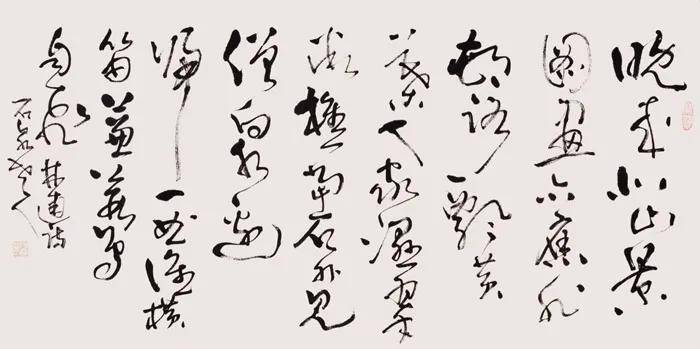 晚来北山景
图画亦应非
村路飘黄
叶人家湿翠
微樵当石外见
僧向水边
归一曲谁横
笛蒹葭鸟
自飞 林逋诗
石泉老人